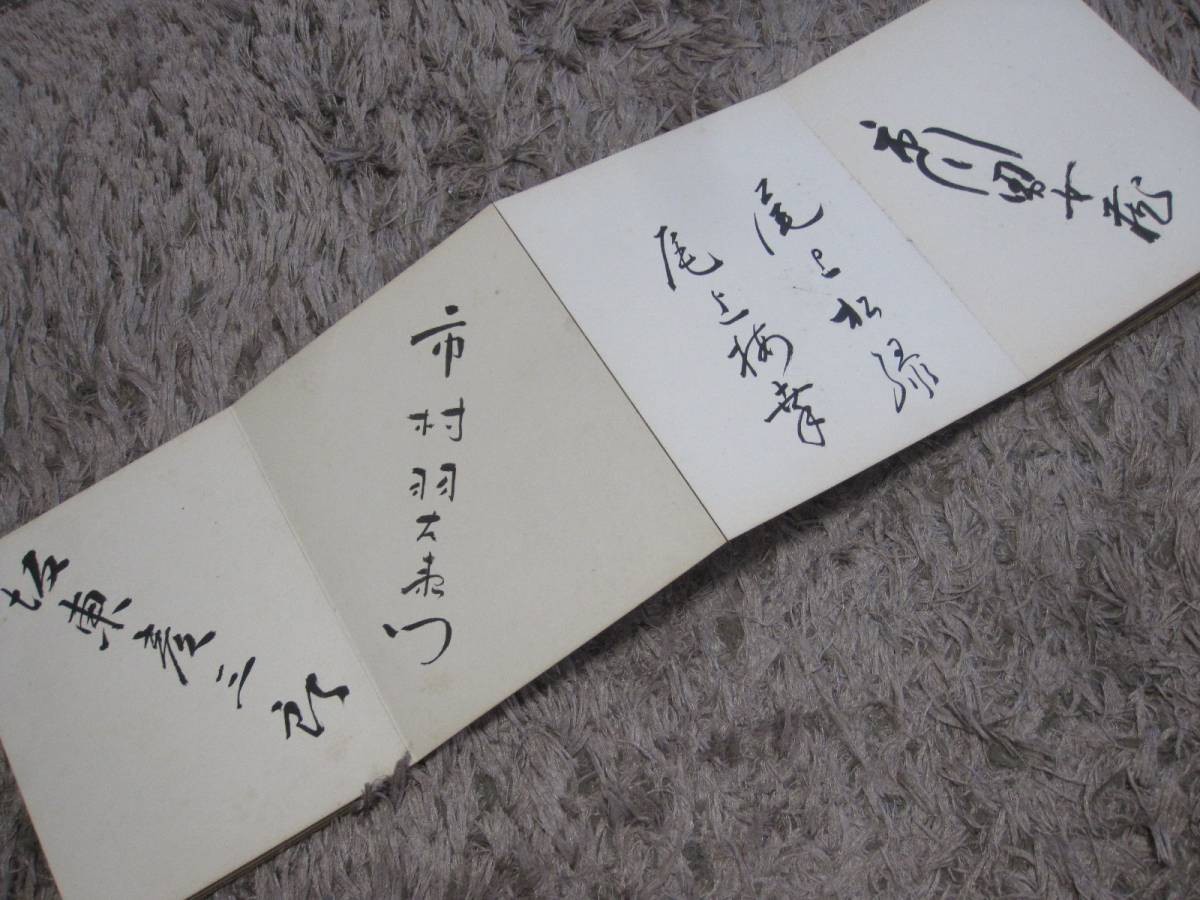 市川團十郎
尾上松緑
尾上梅幸
市村羽左衛門
坂東彦三郎